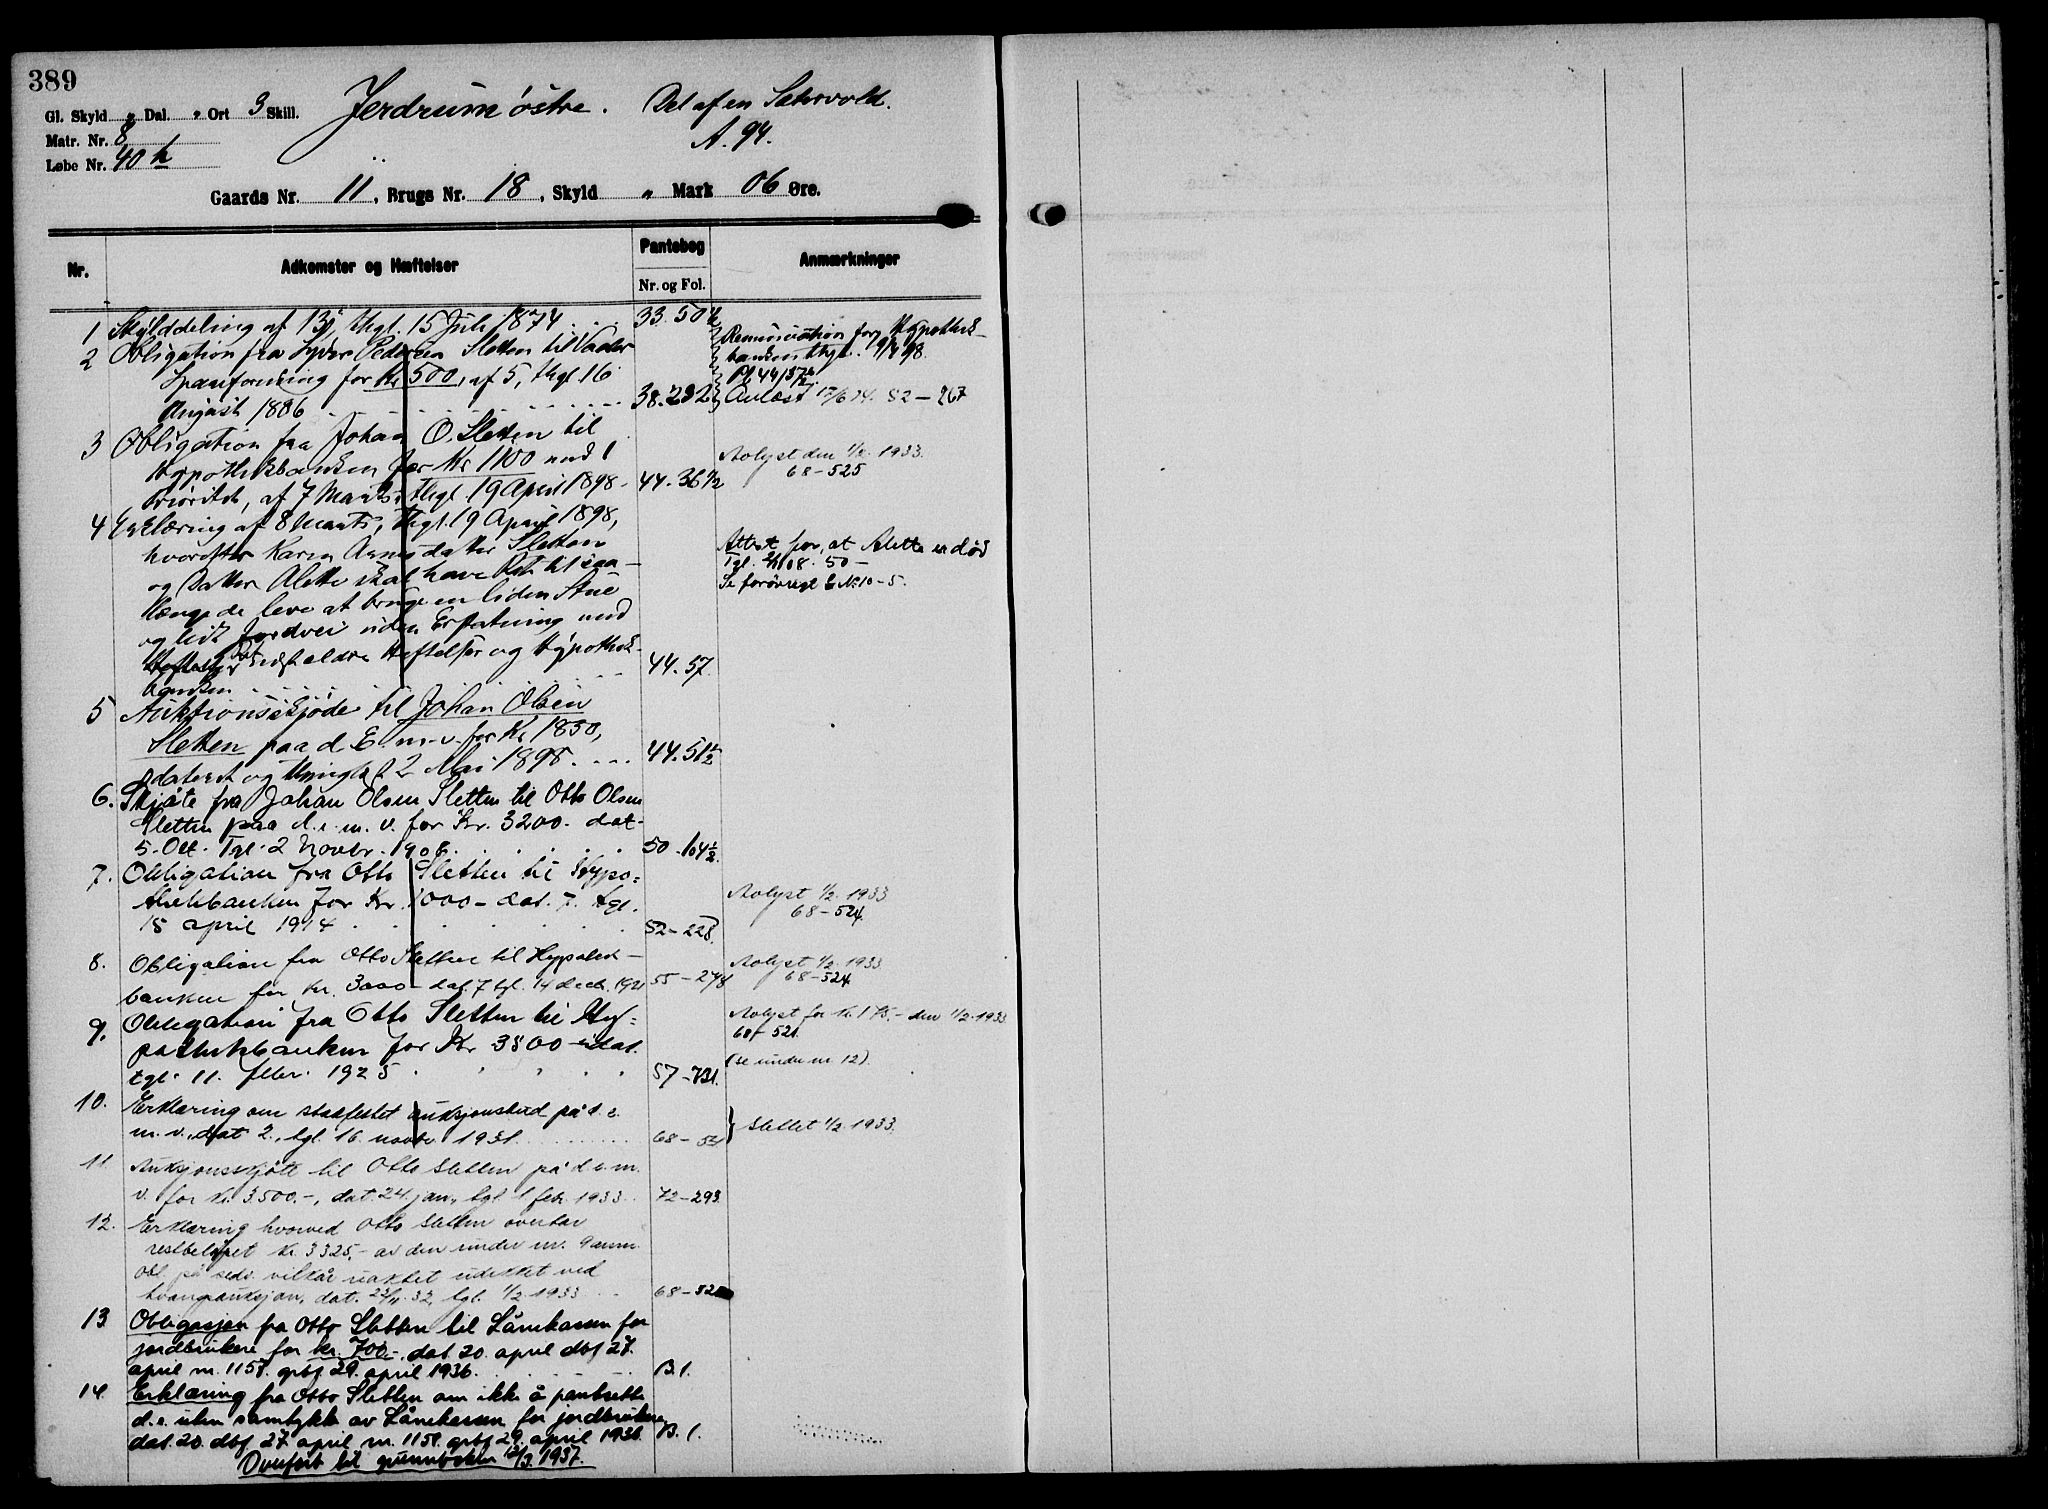 389
Gl. Skyld " Dal. " Ort 3 Skill. Jerdrum østre. Del af en Sætervold.
Matr. Nr. 8 A. 94.
Løbe Nr. 40 h
Gaards Nr. 11, Brugs Nr. 18, Skyld " Mark 06 Øre.
Nr. Adkomster og Hæftelser Pantebog Anmærkninger
Nr. og Fol.
1 Skylddeling af 13, thgl. 15 Juli 1874 33. 50
2 Obligation fra Syver Pedersen Sletten til Vaaler
Spareforening for Kr 500, af 5, thgl. 16
August 1886 38. 292
Renunciation for Hypothek-
banken thgl. 19/4 98.
Pb 44/37
Avlæst 17/6 14. 52-267
3 Obligation fra Johan O. Sletten til
Hypothekbanken for Kr 1100 med 1
Prioritet, af 7 Marts, thgl 19 April 1898 - 44. 36 1/2
Avlyst den 1/2. 1933.
68-525
4 Erklæring af 8 Marts, thgl. 19 April 1898,
hvorefter Karen Agnesdatter Sletten
og Datter Alette skal have Ret til saa-
længe de leve at bruge en liden Stue
og lidt Jordvei uden Erstatning med
ældre Heftelser og Hypothek-
banken 44. 57.
Attest for, at Alette er død
Tgl. 08. 50 -
Se forøvrigt No 10-5.
5 Auktionsskjøde til Johan Olsen
Sletten paa d. E. m. v. for Kr 1850,
dateret og thinglæst 2 Mai 1898. 44. 51 1/2
6. Skjøte fra Johan Olsen Sletten til Otto Olsen
Sletten paa d. e. m. v. for Kr. 3200. dat.
5. Oct. Tgl. 2 Novbr. 1908. 50-104 1/2.
7. Obligation fra Otto Sletten til Hypo=
thekbanken for Kr. 1000- dat. 7. tgl.
15 april 1914 52-228.
Avlyst 1/2. 1933
68-524.
8. Obligation fra Otto Sletten til Hypotek-
banken for Kr. 3000 - dat. 7 tgl. 14 decb. 1921 55-278
Avlyst 1/2. 1933.
68-524.
9. Obligation fra Otto Sletten til Hy=
pothekbanken for Kr 3500 - dat.
tgl. 11. febr. 1925 57-731.
Avlyst for Kr. 175,- den 1/2. 1933
68-521.
(se under nr. 12).
10. Erklæring om stadfestet auksjonsbud på d. e.
m. v., dat 2., tgl. 16 novbr 1931. 68-51
} Slettet 1/2 1933.
11. Auksjonsskjøte til Otto Sletten på d. e. m.
v. for Kr. 3500.-, dat. 24. jan., tgl. 1 febr. 1933. 72-293.
12. Erklæring hvorved Otto Sletten overtar
restbeløpet Kr. 3325,- av den under nr. 9 anm.
obl. på vilkår uaktet udekket ved
tvangsauksjon, dat. 23/11. 32, tgl. 1/2 1933 68-52
13 Obligasjon fra Otto Sletten til Lånekassen for
jordbrukere for kr. 700.-, dat. 20. april dbf 27.
april nr. 1157. grbf 29. april 1936. B. 1.
14. Erklæring fra Otto Sletten om ikke å pantsette
d. e. uten samtykke av Lånekassen for jordbrukere,
dat. 20. dbf. 27 april nr. 1158. grbf 29. april 1936. B. 1.
Overført til grunnboken 12/3. 1937.